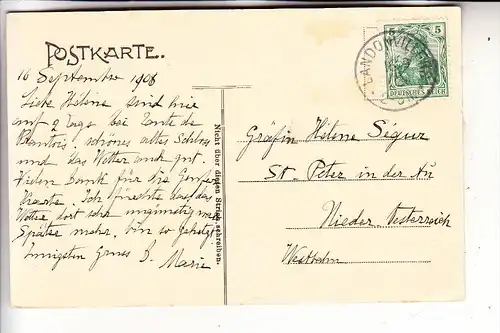 POSTKARTE.
16 Septembre 1908
Liebe Hélène sind hier
auf 2 Tage bei Tante de
schönes altes Schloss
und das Wetter auch gut.
Vielen Dank für die Genfer
Karte. Ich fürchte das das
Wetter dort sehr ungünstig
Später mehr. bin so gehetzt
Innigsten Gruss D. Marie
Nicht über diesen Strich schreiben.
5
DEUTSCHES REICH
Gräfin Hélène Ségur
St. Peter in der Au
Nieder Oesterreich
Westbahn